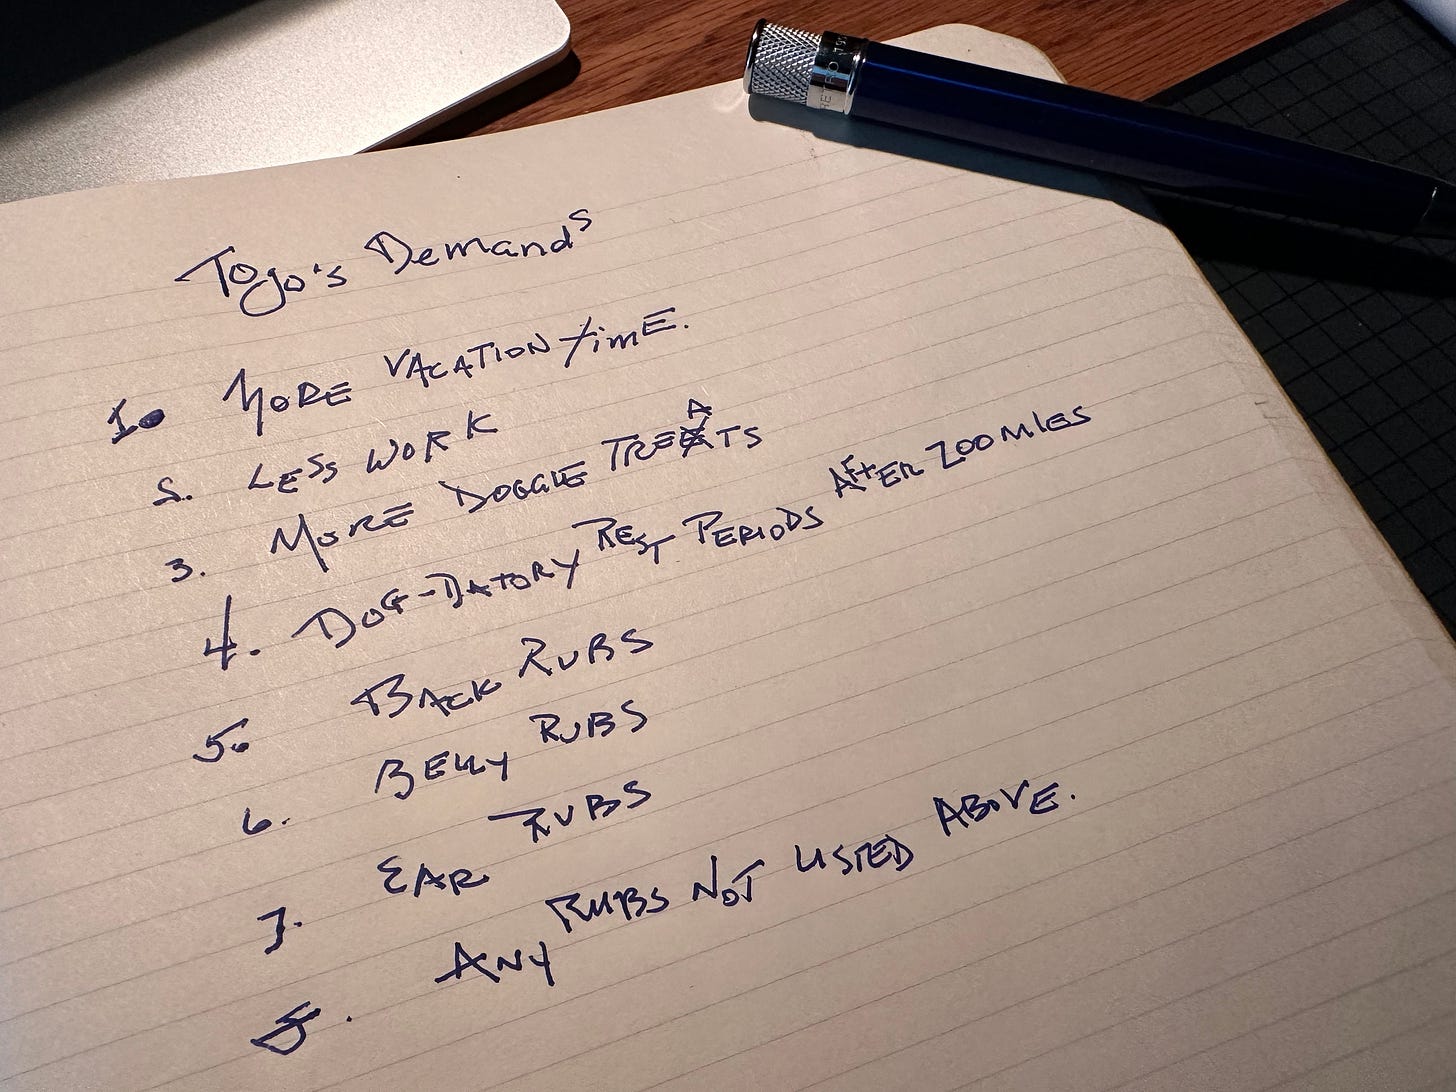 Togo's Demands
1. MORE VACATION timE.
2. LESS WORK
3. MORE DOGGIE TREATS
4. DOG-DATORY REST PERIODS AFTER ZOOMIES
5. BACK RUBS
6. BELLY RUBS
7. EAR RUBS
8. ANY RUBS NOT LISTED ABOVE.